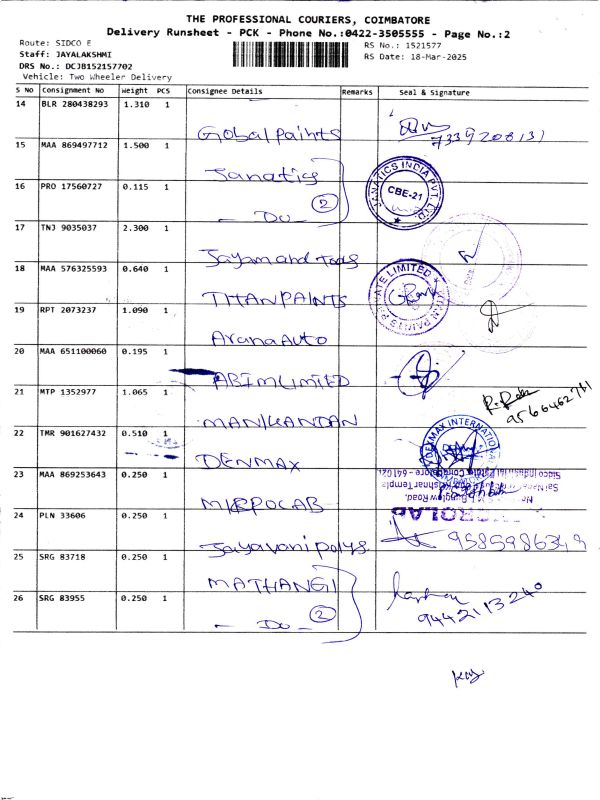 THE PROFESSIONAL COURIERS, COIMBATORE
Delivery Runsheet - PCK - Phone No.:0422-3505555 - Page No.:2
Route: SIDCO E
RS No.: 1521577
Staff: JAYALAKSHMI
RS Date: 18-Mar-2025
DRS No.: DCJB152157702
Vehicle: Two Wheeler Delivery
S NO Consignment No Weight PCS Consignee Details Remarks Seal & Signature
14 BLR 280438293 1.310 1
Global Paints
7339208131
15 MAA 869497712 1.500 1
Janatics
JANATICS INDIA PVT. LTD
CBE-21
16 PRO 17560727 0.115 1
- Do - 2
17 TNJ 9035037 2.300 1
Jayam and Tools
18 MAA 576325593 0.640 1
TITAN PAINTS
TITAN PAINTS PRIVATE LIMITED
19 RPT 2073237 1.090 1
Aruna Auto
20 MAA 651100060 0.195 1
ABIM LIMITED
21 MTP 1352977 1.065 1
MANIKANDAN
9566462711
22 TMR 901627432 0.510 1
DENMAX
DENMAX INTERNATIONAL
23 MAA 869253643 0.250 1
MICROLAB
24 PLN 33606 0.250 1
Jayavani polys
9585986349
25 SRG 83718 0.250 1
MATHANGI
26 SRG 83955 0.250 1
- Do - 2
9442113240